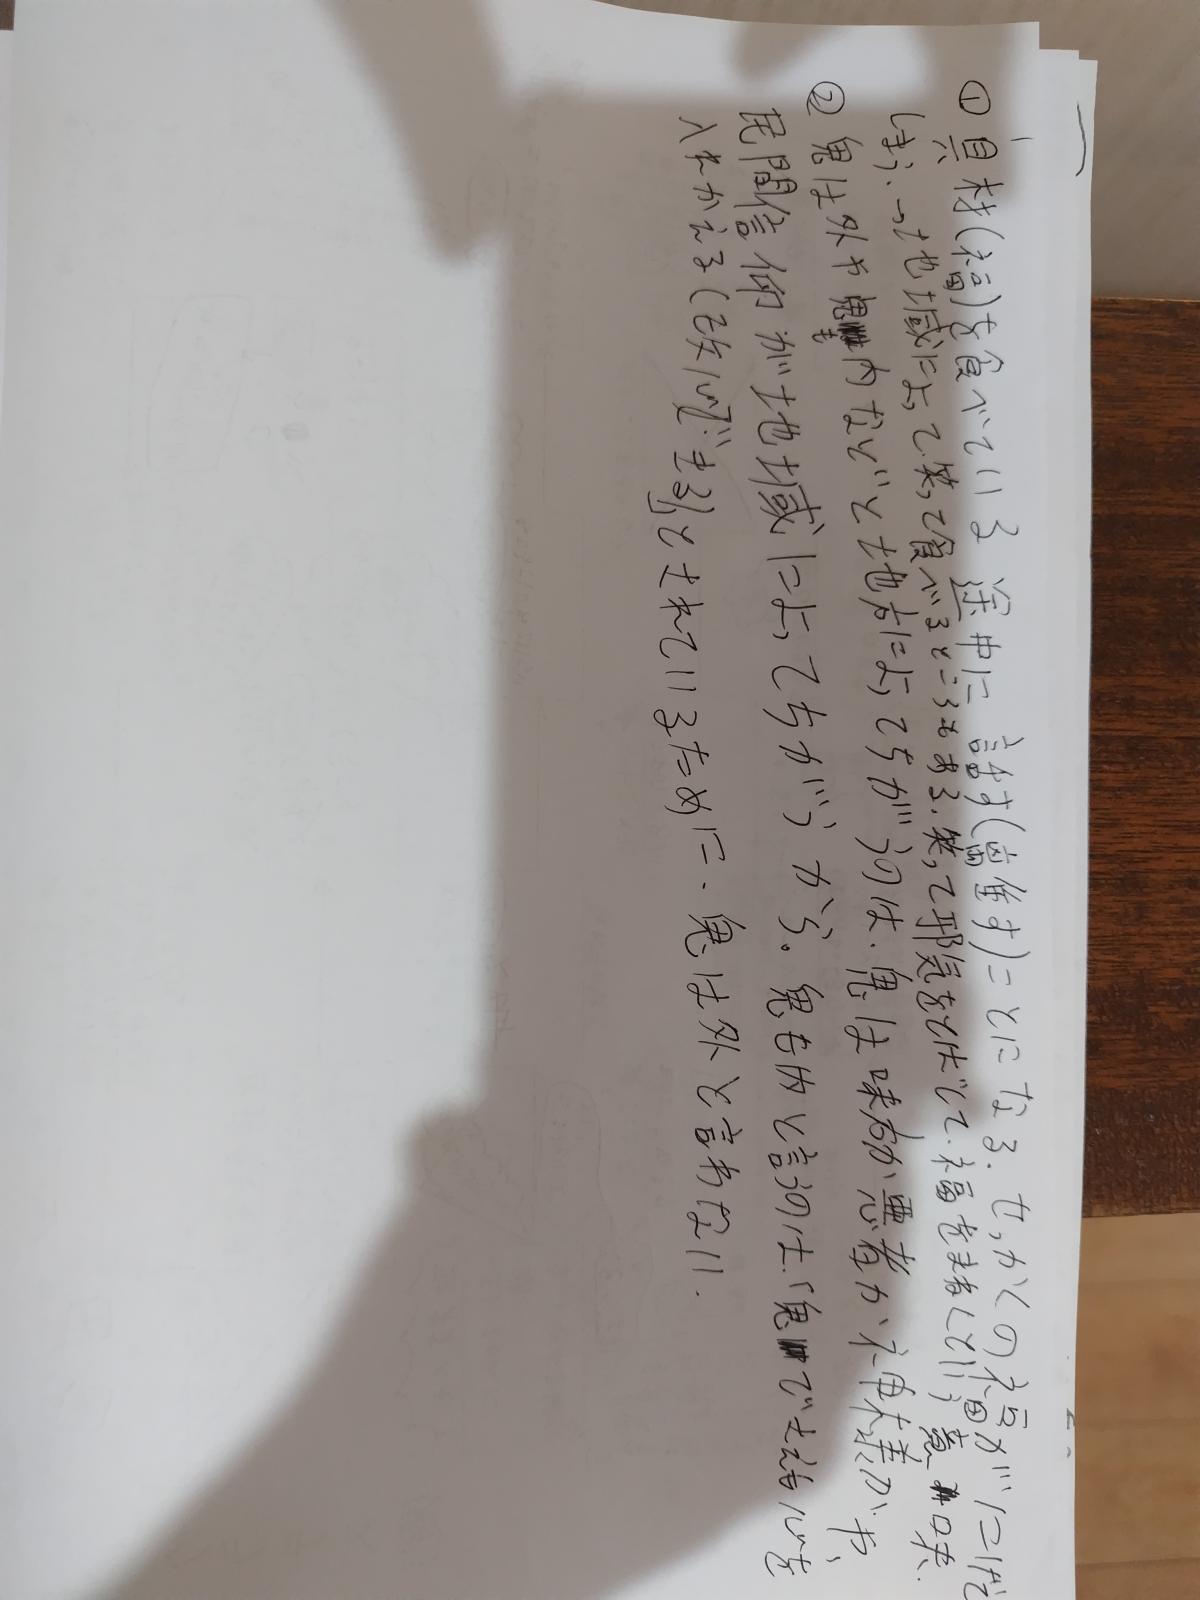 ①具材(福)を食べている途中に話す(歯隹す)ことになる.せっかくの福がにげて
しまう.→地域によって.笑って食べるところもある.笑って邪気をとばして.福をまねくという意味.
②鬼は外や鬼も内などと地方によってちがうのは.鬼は味方か悪者か神様かや、
民間信仰が地域によってちがうから。鬼も内と言うのは.「鬼でさえも心を
入れかえる(改心できる)」とされているために.鬼は外と言わない.